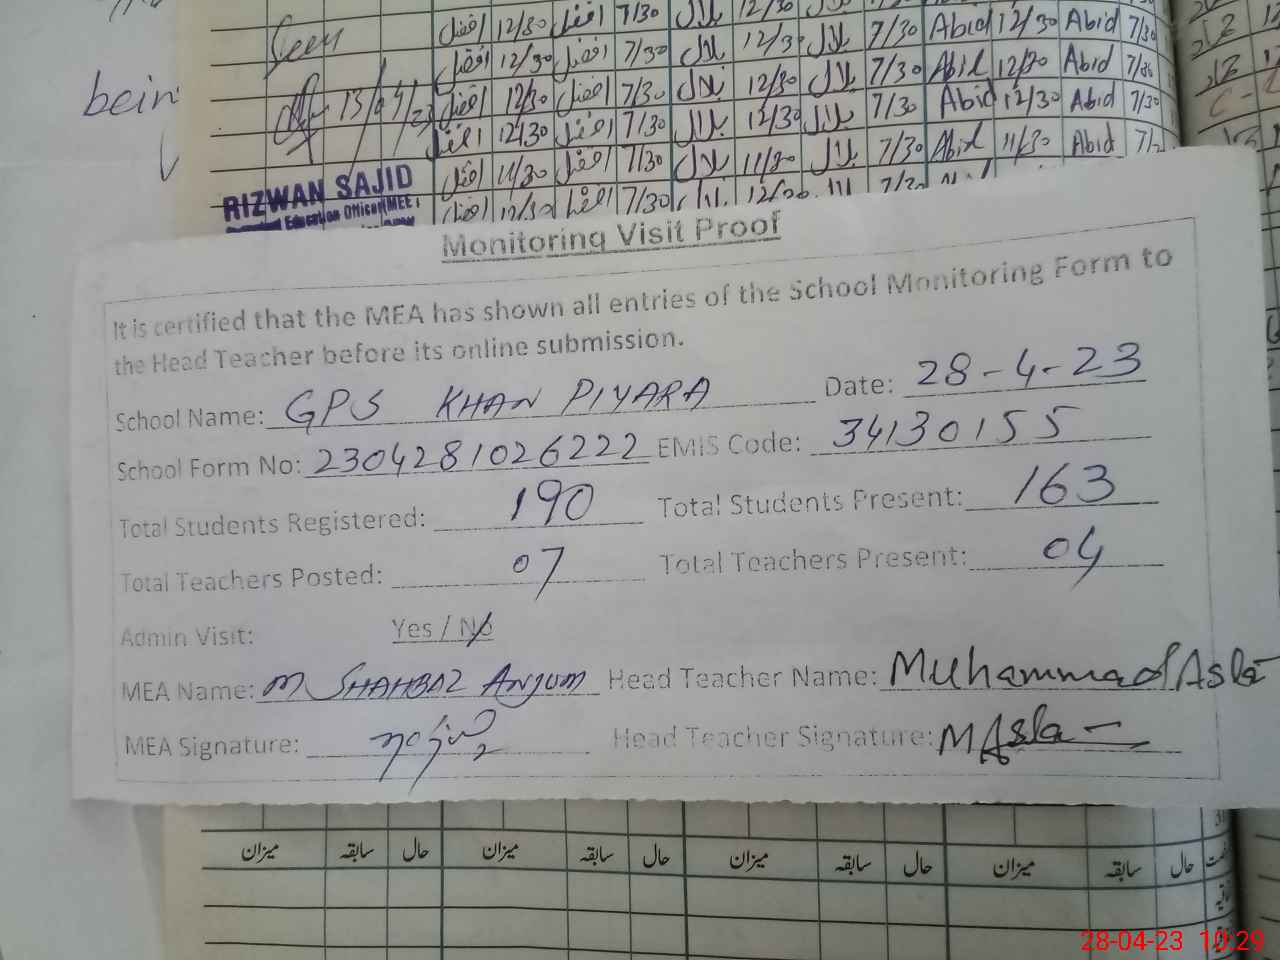 Seen
افضل 12/30 افضل 7/30 بلال 12/30 بلال
افضل 12/30 افضل 7/30 بلال 12/30 بلال 7/30 Abid 12/30 Abid 7/30
being
13/04/23 افضل 12/30 افضل 7/30 بلال 12/30 بلال 7/30 Abid 12/30 Abid 7/30
افضل 12/30 افضل 7/30 بلال 12/30 بلال 7/30 Abid 12/30 Abid 7/30
افضل 11/30 افضل 7/30 بلال 11/30 بلال 7/30 Abid 11/30 Abid
افضل 12/30 7/30
RIZWAN SAJID
Education Officer (MEE)
Monitoring Visit Proof
It is certified that the MEA has shown all entries of the School Monitoring Form to
the Head Teacher before its online submission.
School Name: GPS KHAN PIYARA Date: 28-4-23
School Form No: 2304281026222 EMIS Code: 34130155
Total Students Registered: 190 Total Students Present: 163
Total Teachers Posted: 07 Total Teachers Present: 04
Admin Visit: Yes / No
MEA Name: M SHAHBAZ ANJUM Head Teacher Name: Muhammad Asla
MEA Signature: Head Teacher Signature: M Asla
میزان سابقہ حال میزان سابقہ حال میزان سابقہ حال میزان سابقہ حال
28-04-23 10:29